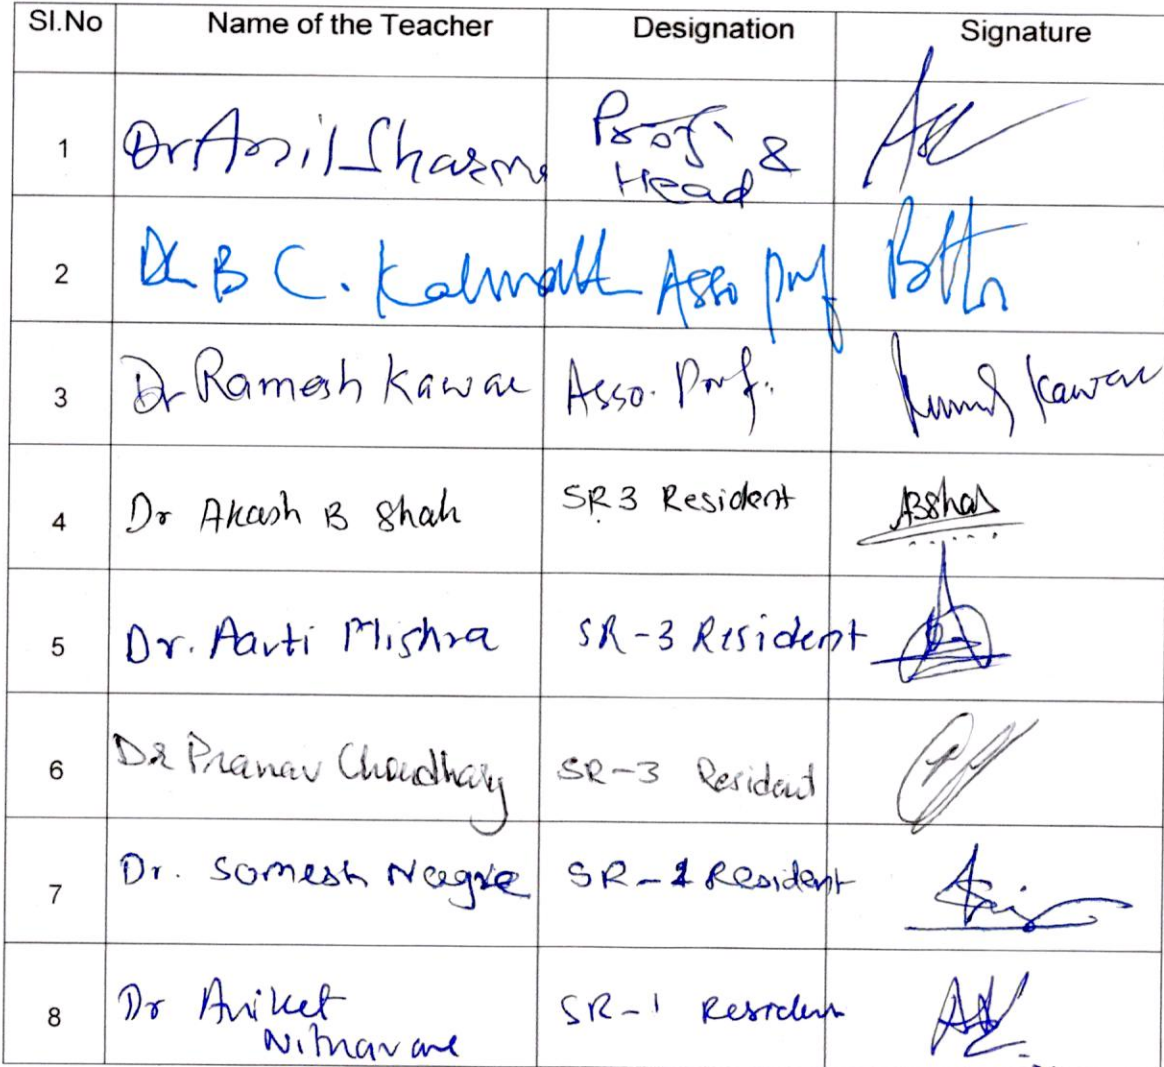 Sl.No Name of the Teacher Designation Signature
1 Dr Anil Sharma Prof. & Head
2 Dr B C. Kalmath Asso Prof
3 Dr Ramesh Kawar Asso. Prof. Kawar
4 Dr Akash B Shah SR3 Resident ABShah
5 Dr. Aarti Mishra SR-3 Resident
6 Dr Pranav Choudhary SR-3 Resident
7 Dr. Somesh Resident
8 Dr Aniket SR-1 Resident
Nitnavare